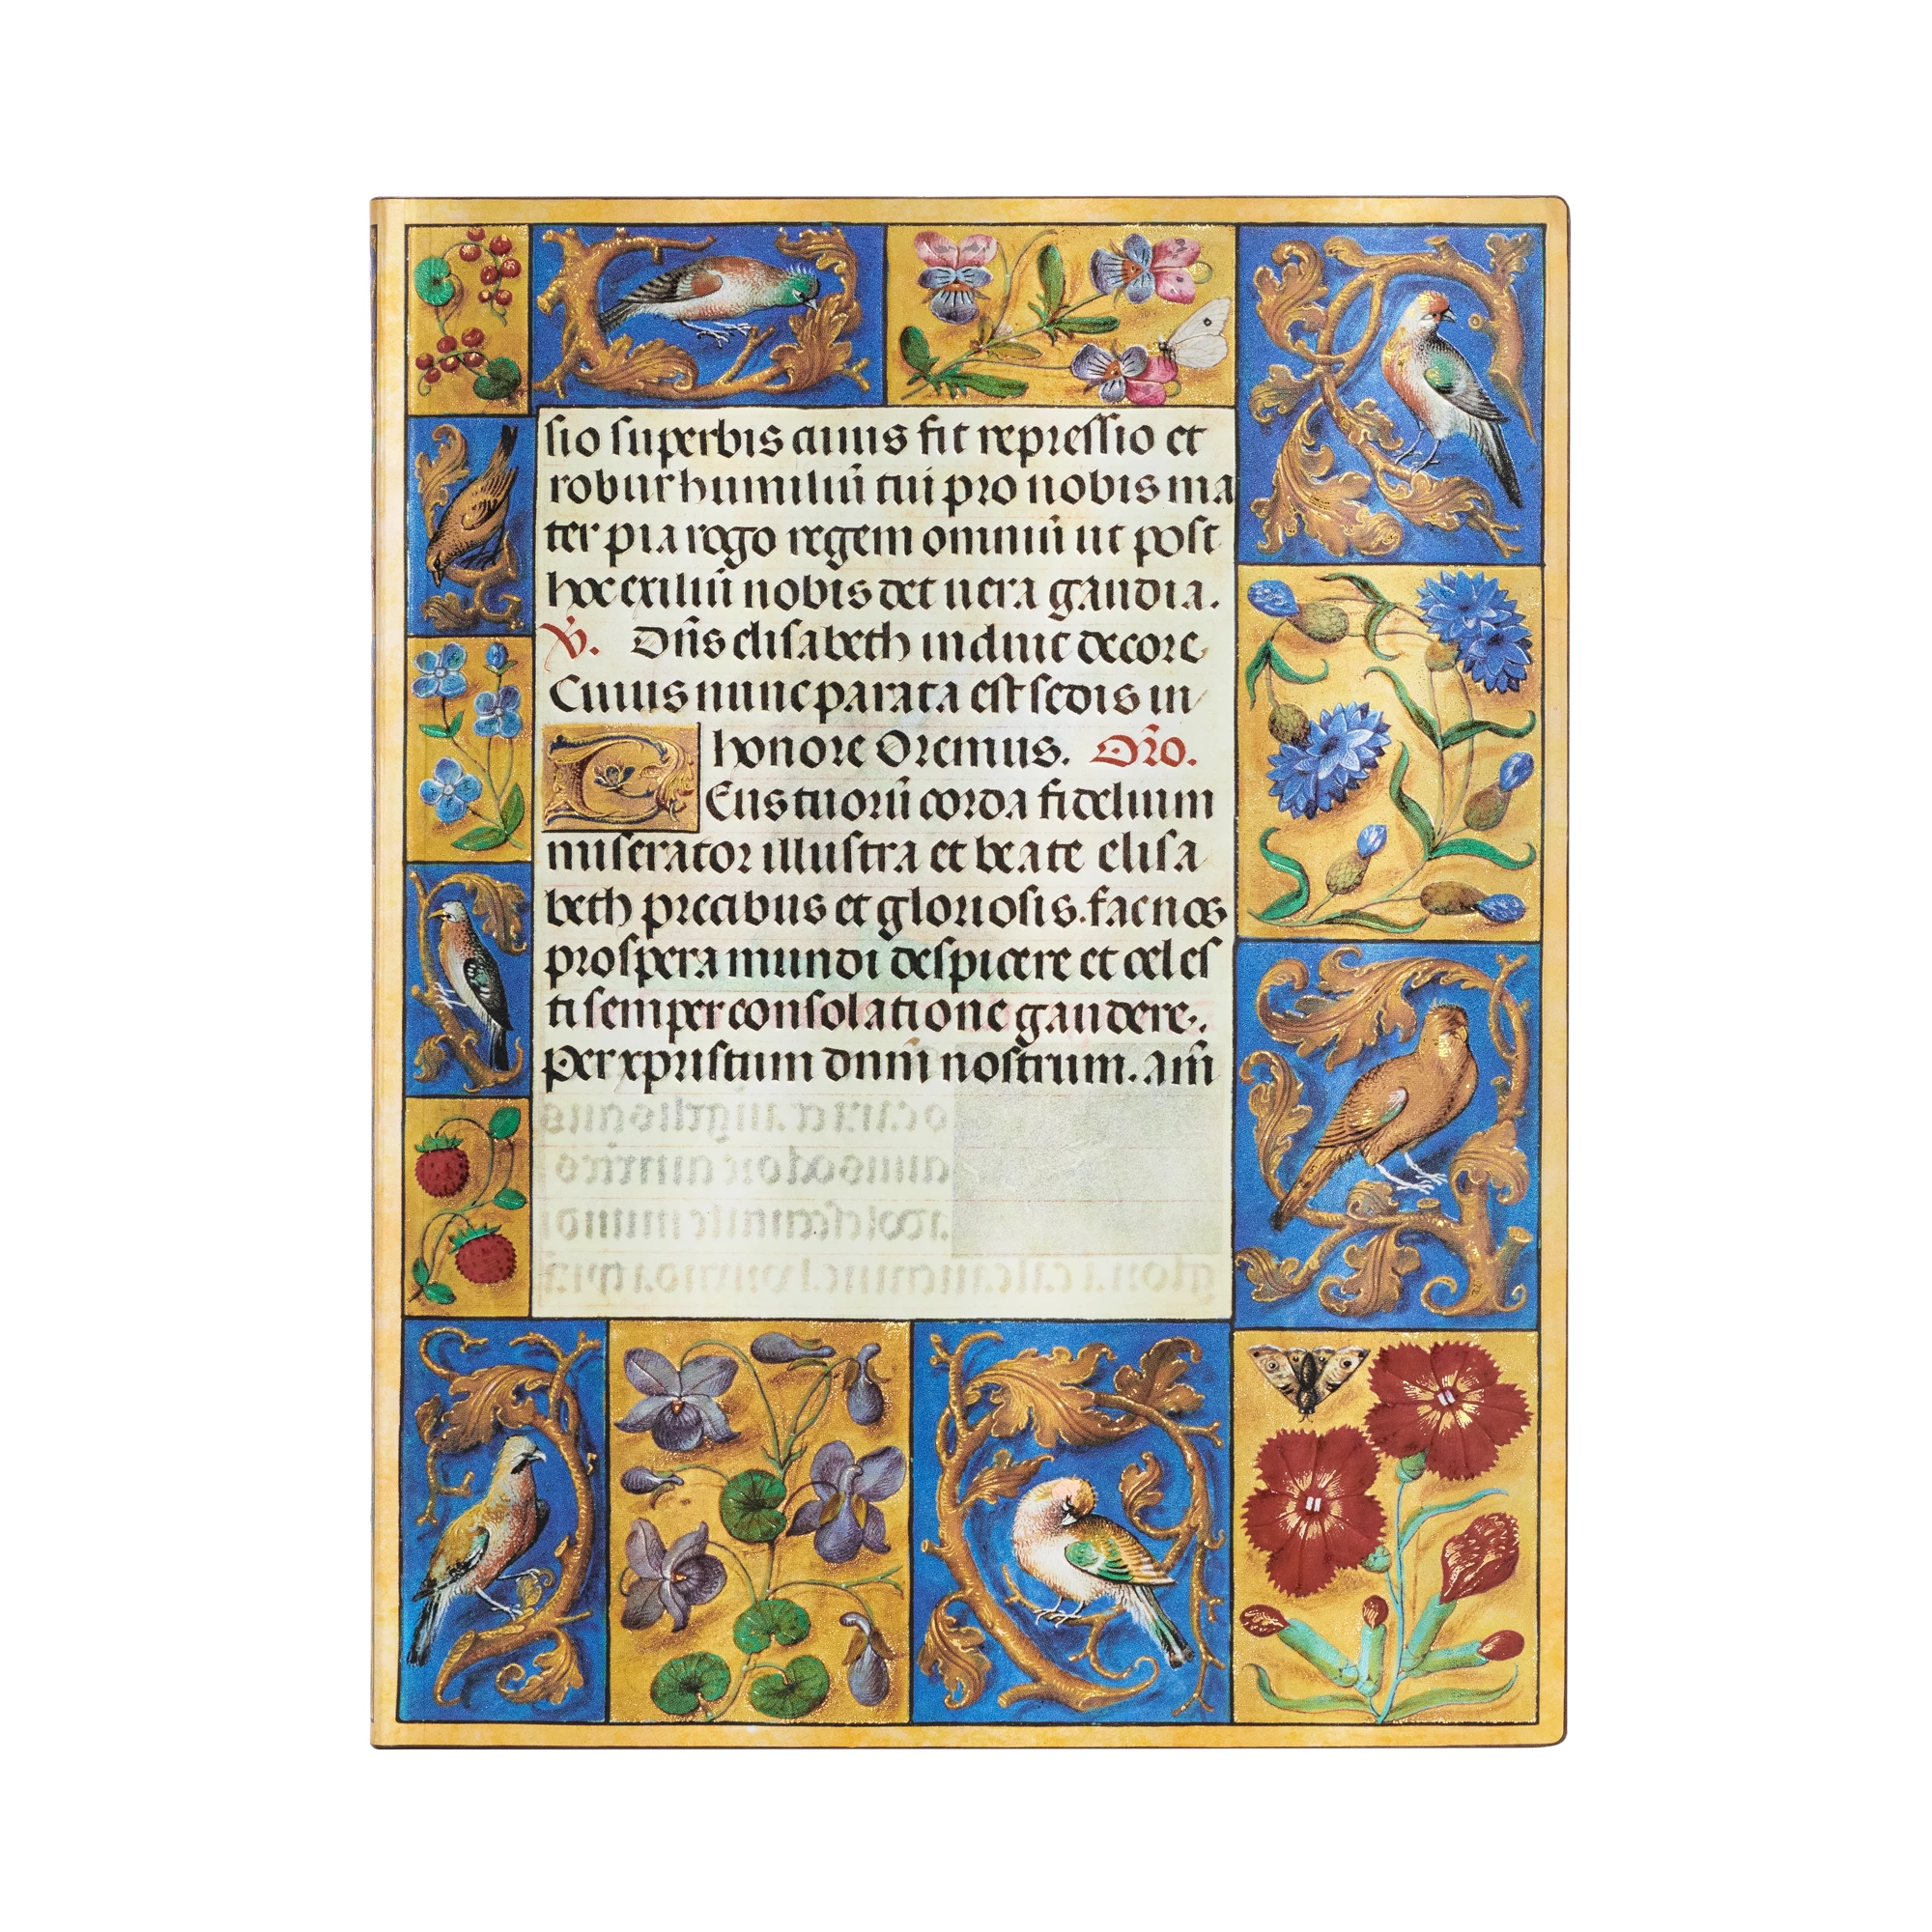 sio superbis cuius fit repressio et
robur humiliū tui pro nobis ma
ter pia rogo regem omniū ut post
hoc exiliū nobis det uera gaudia.
℣. Dn̄s elisabeth induit decore
Cuius nunc parata est sedis in
honore Oremus. Or̄o.
DEus tuorū corda fidelium
miserator illustra et beate elisa
beth precibus et gloriosis. fac nos
prospera mundi despicere et celes
ti semper consolatione gaudere.
Per xpristum dnm̄ nostrum. am̄